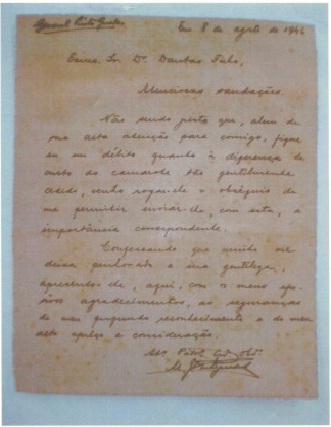 Em 8 de agosto de 1944
Exmo. Sr. Dr. Dantas
saudações.
Não sendo justo que, alem de
sua alta atenção para comigo, fique
eu em débito quanto à diferença de
custo do camarote tão gentilmente
cedido, venho rogar-lhe o obséquio de
me permitir enviar-lhe, com esta, a
importância correspondente.
Confessando que muito me
deixa penhorado a sua gentileza,
apresento-lhe, aqui, com o meus
agradecimentos, as seguranças
do meu profundo reconhecimento e do meu
alto apreço e consideração.